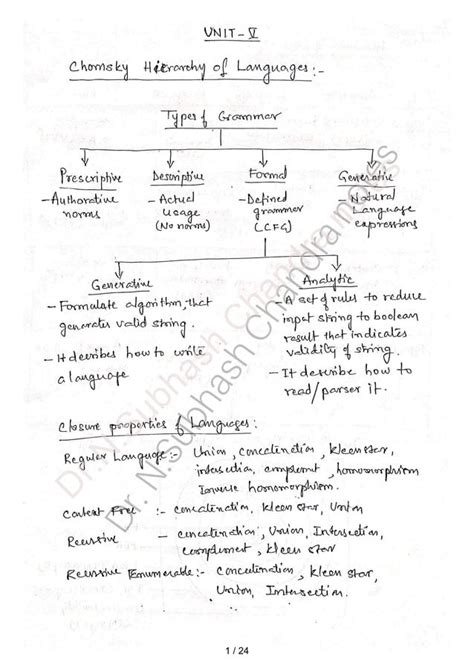 UNIT - V
Chomsky Hierarchy of Languages :-
Types of Grammar
Prescriptive
- Authorative norms
Descriptive
- Actual Usage
(No norms)
Formal
- Defined grammar
(CFG)
Generative
- Natural Language expressions
Generative
- Formulate algorithm that
generates valid string.
- It decribes how to write
a language
Analytic
- A set of rules to reduce
input string to boolean
result that indicates
validity of string.
- It describe how to
read/parser it.
Closure properties of Languages :
Regular Language :- Union, concatination, Kleen star,
intersection, complement, homomorphism
Inverse homomorphism.
Context Free :- concatination, Kleen star, Union
Recursive - concatination, Union, Intersection,
complement, Kleen star
Recursive Enumerable :- Concatination, Kleen star,
Union, Intersection.
Dr. N.Subhash Chandra notes
1 / 24